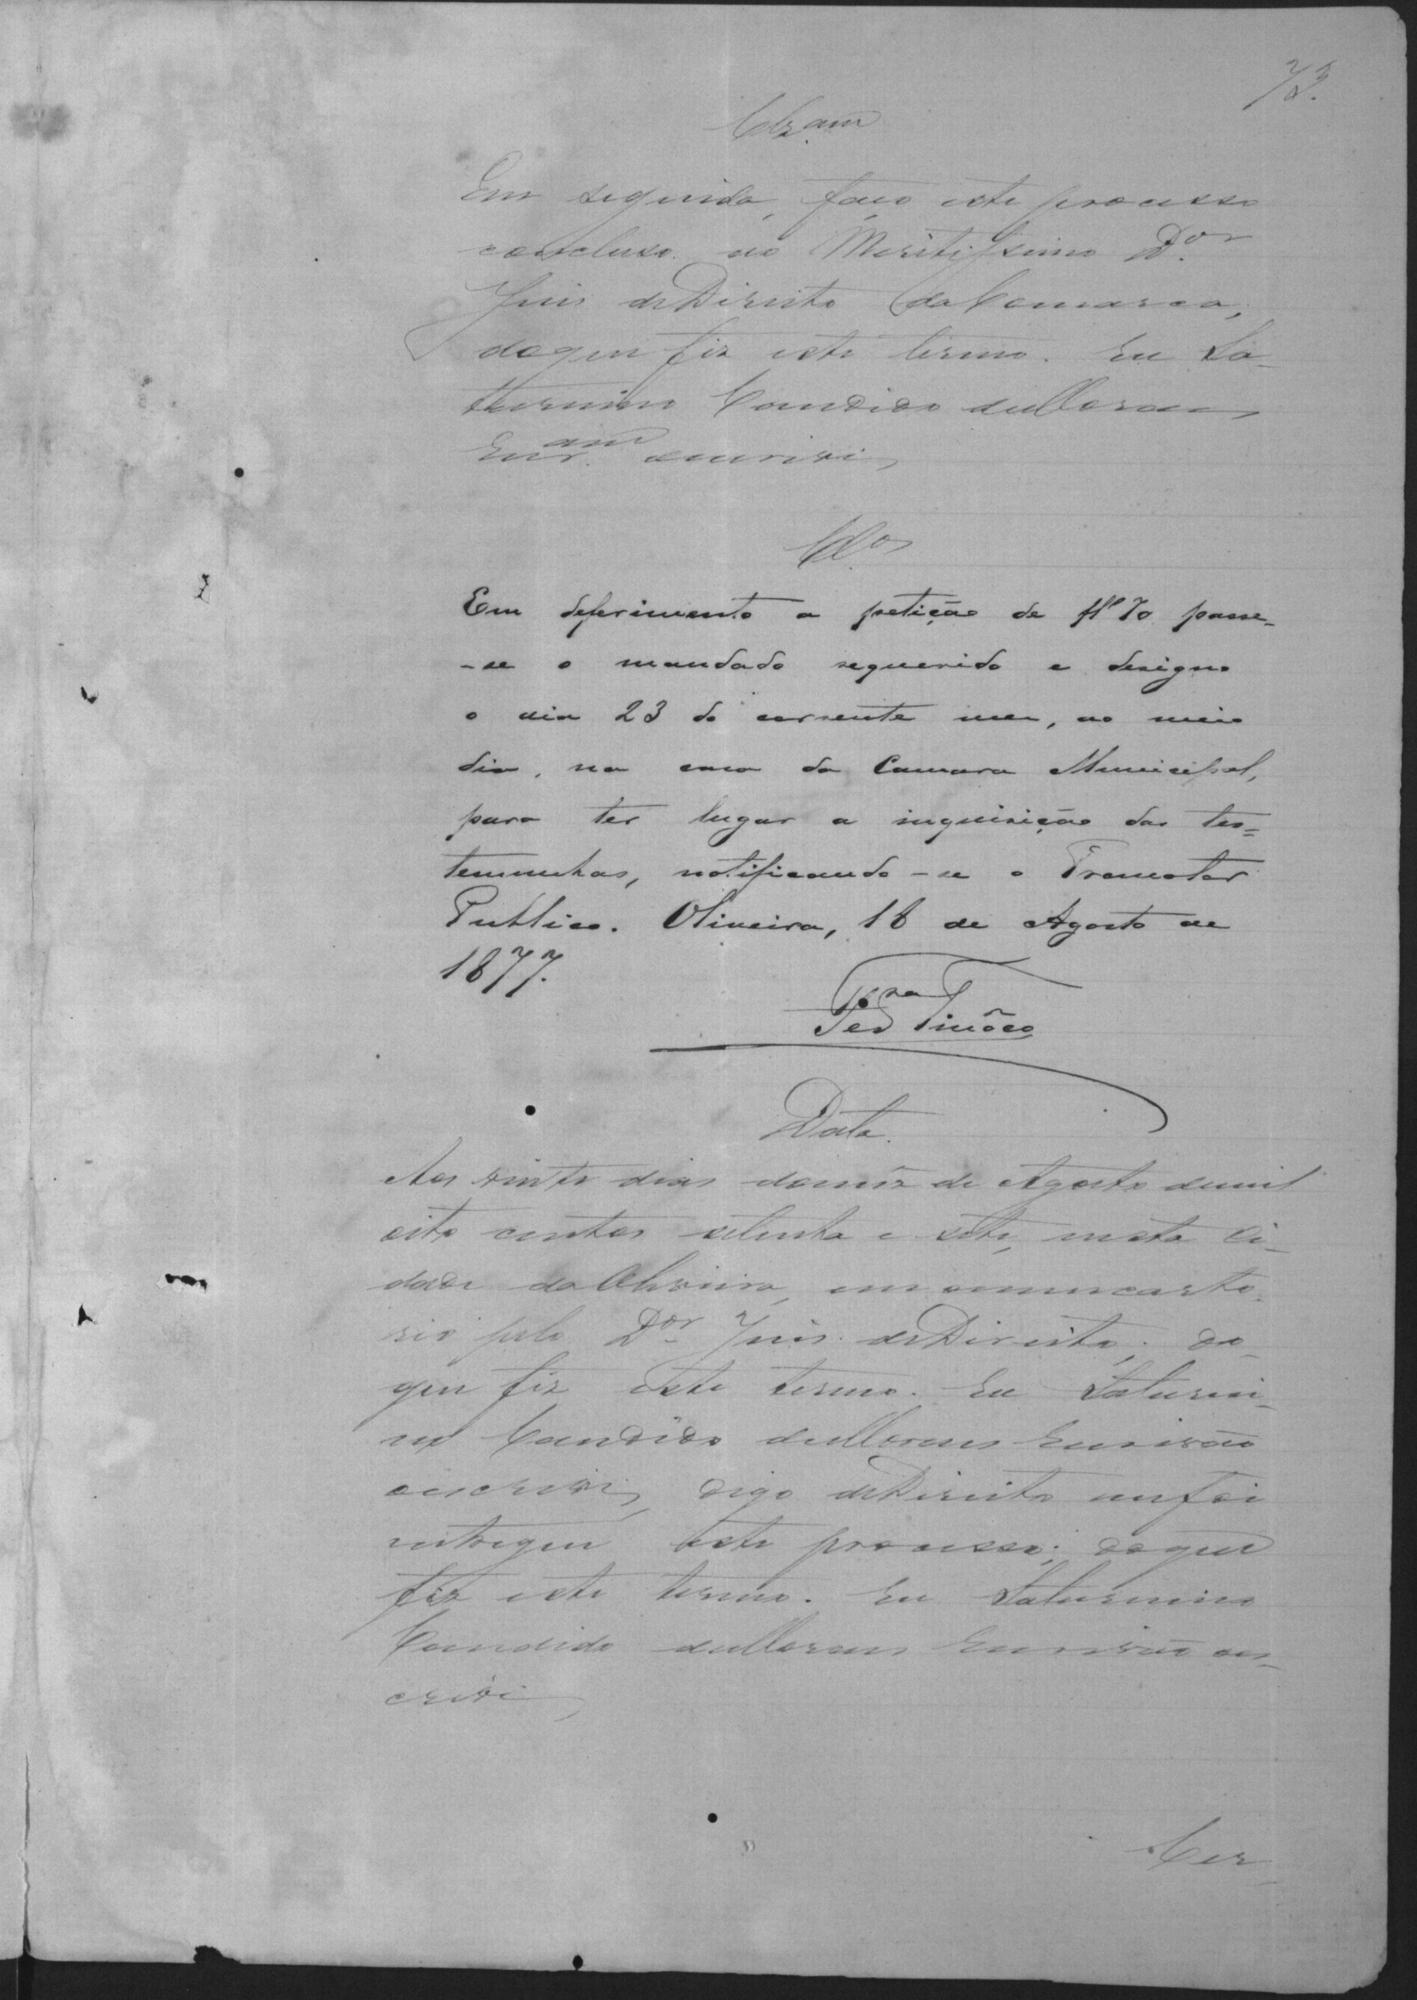 73.
Clz.am
Em seguida, faço este processo
concluso ao Meritissimo Dor
Juis deDireito daComarca,
doque fiz este termo. Eu Sa-
turnino Candido deMoraes
Escr.am oescrivi
Clos
Em deferimento a petição de fl 70 passe-
-se o mandado requerido e designo
o dia 23 do corrente mez, ao meio
dia, na casa da Camara Municipal,
para ter lugar a inquirição das tes=
temunhas, notificando-se o Promotor
Publico. Oliveira, 18 de Agosto de
1877.
Tinôco
Data.
Aos vinte dias domêz de Agosto demil
oito centos setenta e sete, nesta Ci-
dade da Oliveira, em omeucarto
rio pelo Dor Juis deDireito, do
que fiz este termo. Eu Saturni-
no Candido deMoraes Escrivão
oescrivi, digo deDireito mefoi
entregue este processo; doque
fiz este termo. Eu Saturnino
Candido deMoraes Escrivão oes-
crivi
Cer